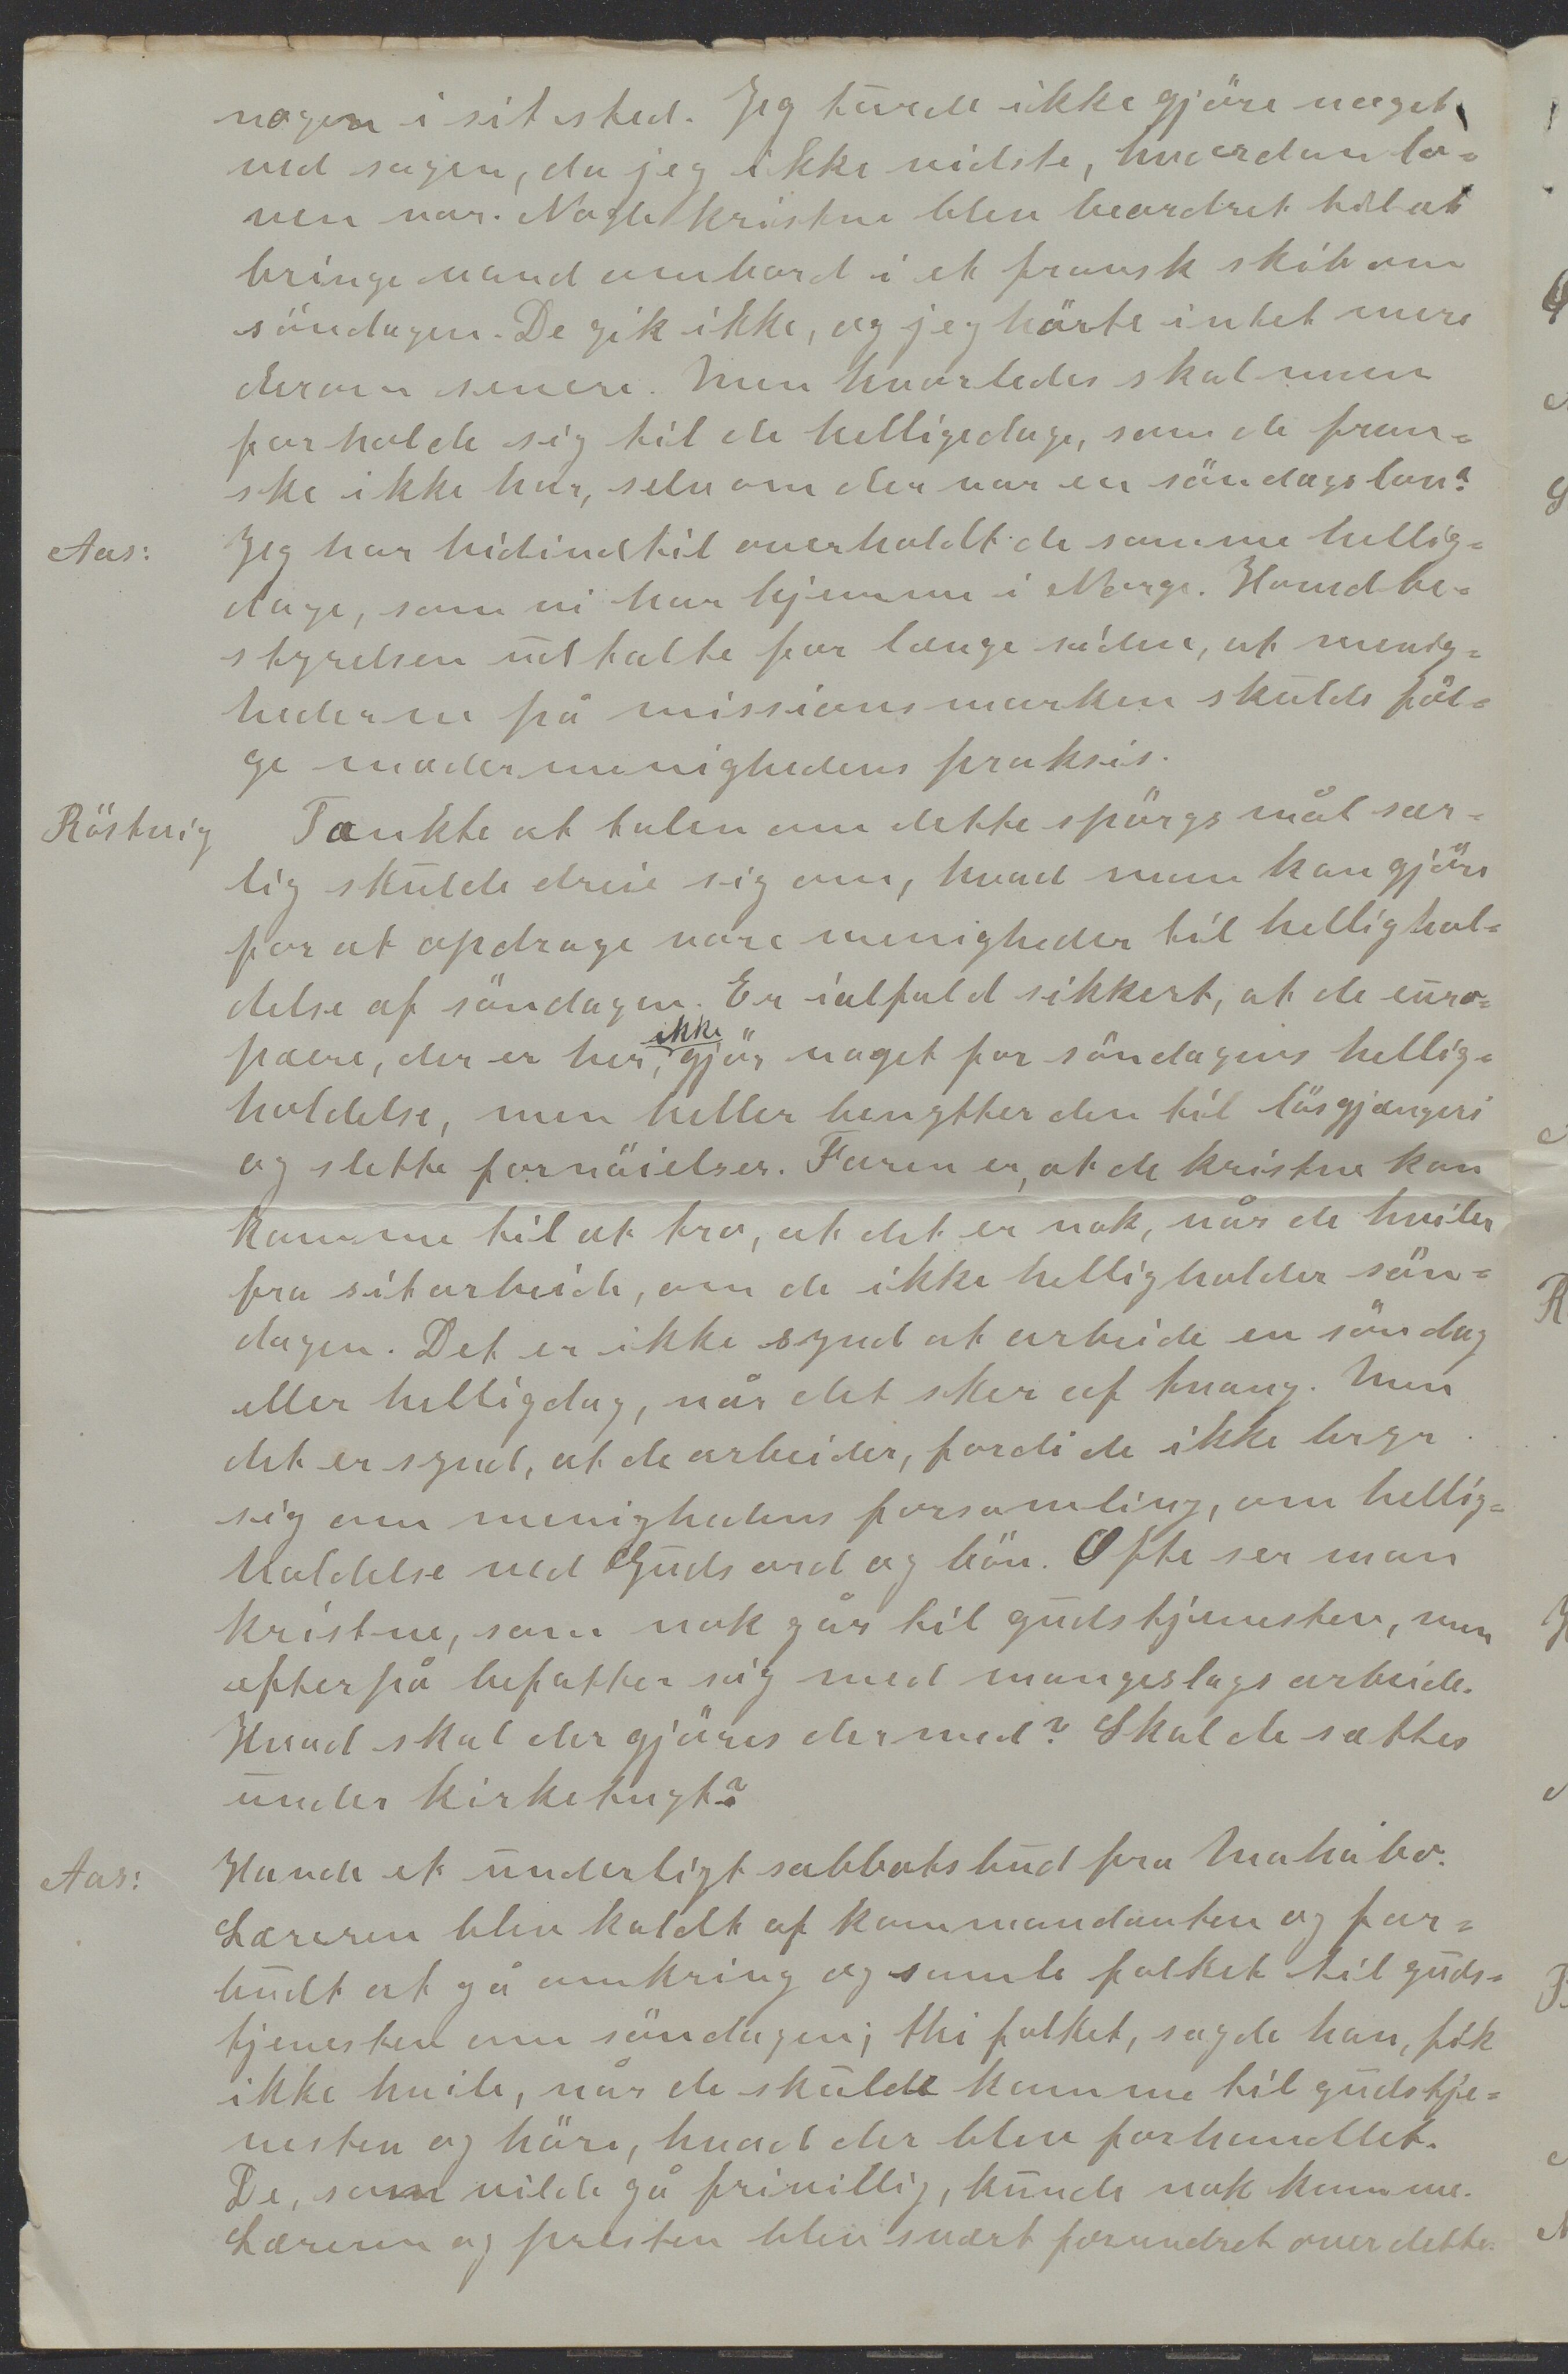 nogen i sit sted. Jeg turde ikke gjöre noget
ved sagen, da jeg ikke vidste, hvordan lo-
ven var. Nogle kristne blev beordret til at
bringe vand ombord i et fransk skib om
söndagen. De gik ikke, og jeg hörte intet mere
derom senere. Men hvorledes skal man
forholde sig til de helligedage, som de fran-
ske ikke har, selv om der var en söndagslov?
Aas: Jeg har hidindtil overholdt de samme hellig-
dage, som vi har hjemme i Norge. Hovedbe-
styrelsen udtalte for længe siden, at menig-
hederne på missionsmarken skulde föl-
ge modermenighedens praksis.
Röstvig Tænkte at talen om dette spörgsmål sær-
lig skulde dreie sig om, hvad man kan gjöre
for at opdrage vore menigheder til hellighol-
delse af söndagen. Er ialfald sikkert, at de euro-
pæere, der er her, ikke gjör noget for söndagens hellig-
holdelse, men heller benytter den til lösgjængeri
og slette fornöielser. Faren er, at de kristne kan
komme til at tro, at det er nok, når de hviler
fra sit arbeide, om de ikke helligholder sön-
dagen. Det er ikke synd at arbeide en söndag
eller helligdag, når det sker af tvang. Men
det er synd, at de arbeider, fordi de ikke bryr
sig om menighedens forsamling, om hellig-
holdelse ved Guds ord og bön. Ofte ser man
kristne, som nok går til gudstjenesten, men
efterpå befatter sig med mangeslags arbeide.
Hvad skal der gjöres dermed? Skal de sættes
under kirketugt?
Aas: Havde et underligt sabbatsbud fra Mahabo.
Læreren blev kaldt af kommandanten og for-
budt at gå omkring og samle folket til guds-
tjenesten om söndagen; thi folket, sagde han, fik
ikke hvile, når de skulde komme til gudstje-
nesten og höre, hvad der blev forhandlet.
De, som vilde gå frivillig, kunde nok komme.
Læreren og presten blev svært forundret over dette.